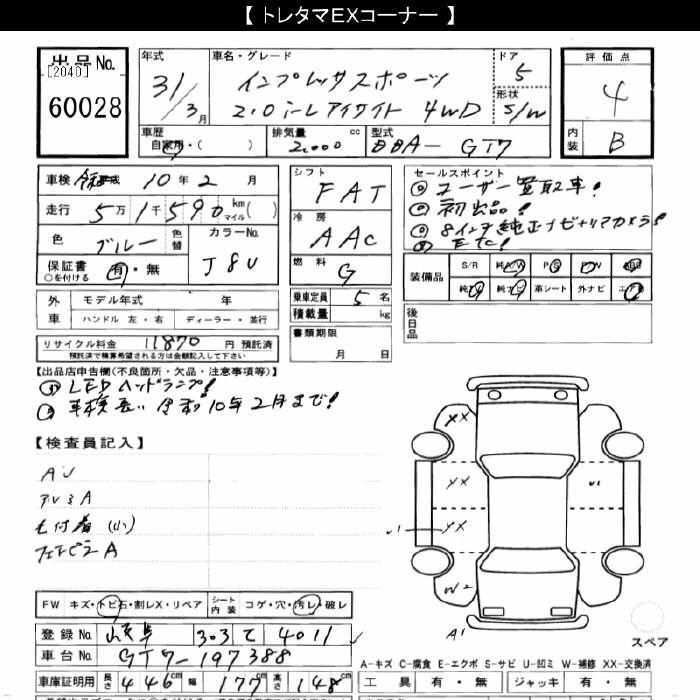 【 トレタマEXコーナー 】
出品No.
[2040]
60028
年式
31/3月
車名・グレード
インプレッサスポーツ
2.0i-Lアイサイト 4WD
ドア
5
形状
S/W
評価点
4
内装
B
車歴
自家用・( )
排気量
2,000 cc
型式
DBA- GT7
車検
令和 10年 2月
走行
5万1千590 km マイル( )
色
ブルー
色替
カラーNo.
J8U
保証書 有・無
○を付ける
シフト
FAT
冷房
AAC
燃料
G
乗車定員 5名
積載量 kg
書類期限
月 日
セールスポイント
①ユーザー買取車!
②初出品!
③8インチ純正ナビ+リアカメラ!
④ETC!
装備品
S/R 純AW PS PW
純 純ナビ 革シート 外ナビ エアB
後日品
外車
モデル年式 年
ハンドル 左・右 ディーラー・並行
リサイクル料金 11870 円 預託済
預託済で積算希望される方は金額記入して下さい
【出品店申告欄(不良箇所・欠品・注意事項等)】
①LEDヘッドランプ!
②車検長い 令和10年2月まで!
【検査員記入】
AU
アルミA
毛付着(小)
フロントピラーA
XX
XX
XX
W2
A1
U1
スペア
FW キズ・トビ石・割レX・リペア
シート内装 コゲ・穴・汚レ・破レ
登録No. 岐阜 303 て 4011
車台No. GT7-197388
車庫証明用 長さ 446cm 幅 177cm 高さ 148cm
A-キズ C-腐食 E-エクボ S-サビ U-凹ミ W-補修 XX-交換済
工具 有・無 ジャッキ 有・無